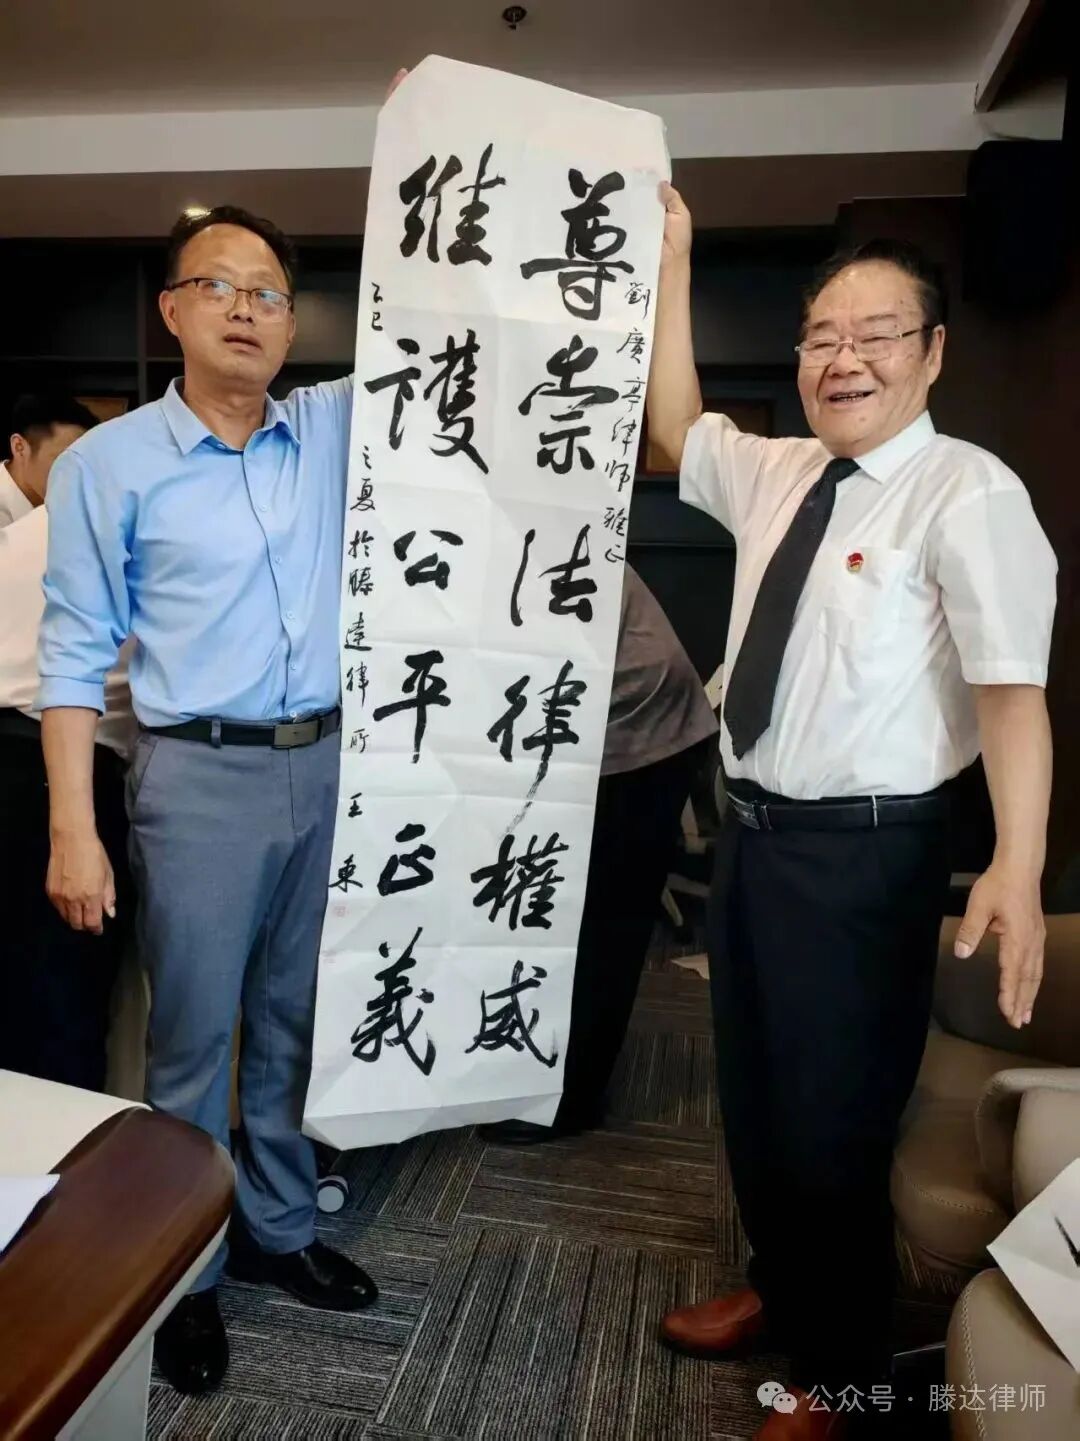 劉廣亭律师雅正
尊崇法律權威
维護公平正義
乙巳之夏於滕达律所王東
公众号·滕达律师